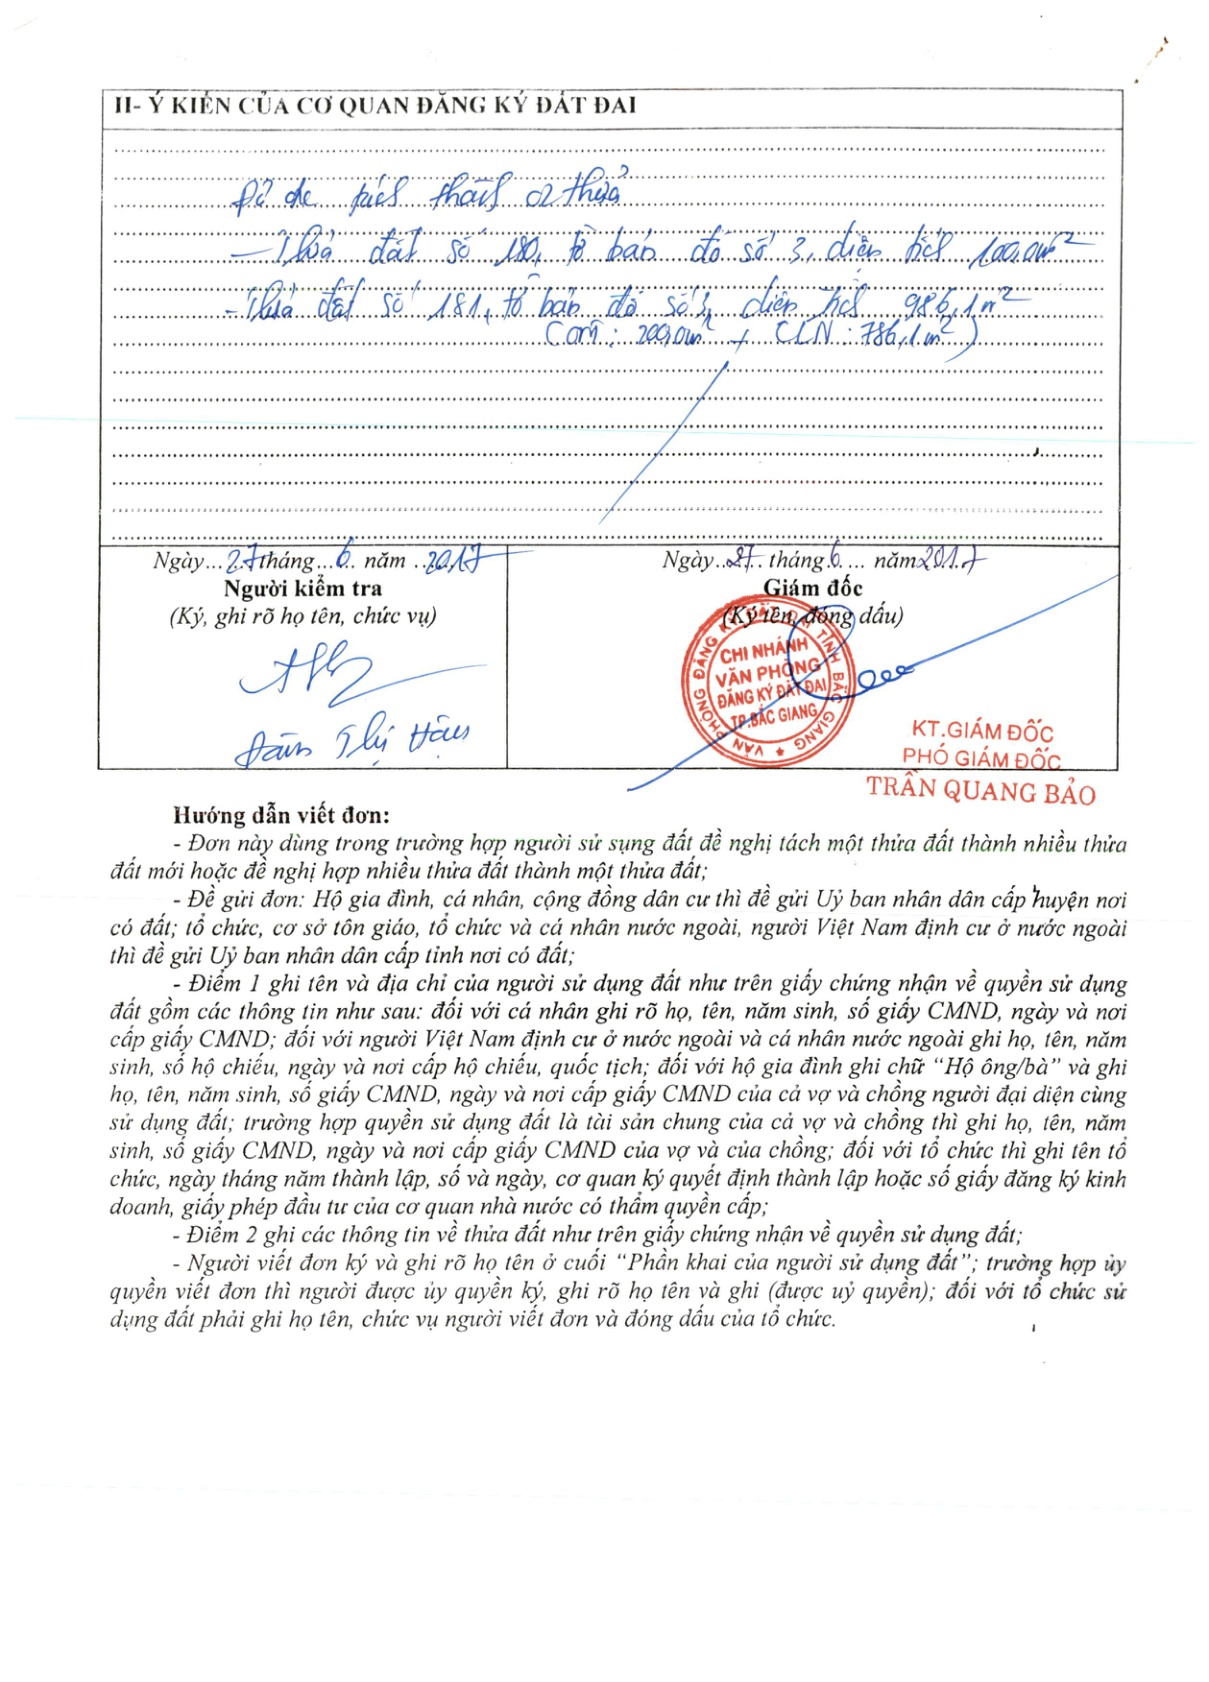 II- Ý KIẾN CỦA CƠ QUAN ĐĂNG KÝ ĐẤT ĐAI
thành 02 thửa
- Thửa đất số 180, tờ bản đồ số 3, diện tích 100,0m²
- Thửa đất số 181, tờ bản đồ số 3, diện tích 986,1m²
200,0m² + CLN: 786,1m²)
Ngày...27tháng...6.. năm ..2017
Ngày..27.. tháng.6. ... năm2017
Người kiểm tra
Giám đốc
(Ký, ghi rõ họ tên, chức vụ)
(Ký tên, đóng dấu)
VĂN PHÒNG ĐĂNG KÝ ĐẤT ĐAI TỈNH BẮC GIANG
CHI NHÁNH
VĂN PHÒNG
ĐĂNG KÝ ĐẤT ĐAI
TP.BẮC GIANG
Thị Hậu
KT.GIÁM ĐỐC
PHÓ GIÁM ĐỐC
TRẦN QUANG BẢO
Hướng dẫn viết đơn:
- Đơn này dùng trong trường hợp người sử sụng đất đề nghị tách một thửa đất thành nhiều thửa
đất mới hoặc đề nghị hợp nhiều thửa đất thành một thửa đất;
- Đề gửi đơn: Hộ gia đình, cá nhân, cộng đồng dân cư thì đề gửi Uỷ ban nhân dân cấp huyện nơi
có đất; tổ chức, cơ sở tôn giáo, tổ chức và cá nhân nước ngoài, người Việt Nam định cư ở nước ngoài
thì đề gửi Uỷ ban nhân dân cấp tỉnh nơi có đất;
- Điểm 1 ghi tên và địa chỉ của người sử dụng đất như trên giấy chứng nhận về quyền sử dụng
đất gồm các thông tin như sau: đối với cá nhân ghi rõ họ, tên, năm sinh, số giấy CMND, ngày và nơi
cấp giấy CMND; đối với người Việt Nam định cư ở nước ngoài và cá nhân nước ngoài ghi họ, tên, năm
sinh, số hộ chiếu, ngày và nơi cấp hộ chiếu, quốc tịch; đối với hộ gia đình ghi chữ “Hộ ông/bà” và ghi
họ, tên, năm sinh, số giấy CMND, ngày và nơi cấp giấy CMND của cả vợ và chồng người đại diện cùng
sử dụng đất; trường hợp quyền sử dụng đất là tài sản chung của cả vợ và chồng thì ghi họ, tên, năm
sinh, số giấy CMND, ngày và nơi cấp giấy CMND của vợ và của chồng; đối với tổ chức thì ghi tên tổ
chức, ngày tháng năm thành lập, số và ngày, cơ quan ký quyết định thành lập hoặc số giấy đăng ký kinh
doanh, giấy phép đầu tư của cơ quan nhà nước có thẩm quyền cấp;
- Điểm 2 ghi các thông tin về thửa đất như trên giấy chứng nhận về quyền sử dụng đất;
- Người viết đơn ký và ghi rõ họ tên ở cuối “Phần khai của người sử dụng đất”; trường hợp ủy
quyền viết đơn thì người được ủy quyền ký, ghi rõ họ tên và ghi (được uỷ quyền); đối với tổ chức sử
dụng đất phải ghi họ tên, chức vụ người viết đơn và đóng dấu của tổ chức.